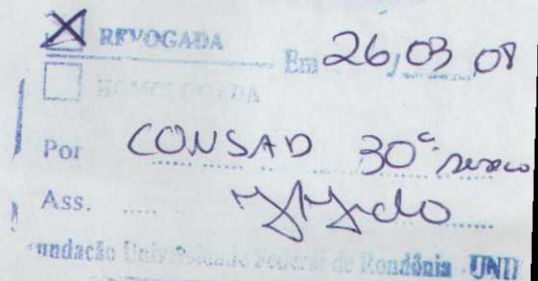 X REVOGADA Em 26/03/08
HOMOLOGADA
Por CONSAD 30ª
Ass.
undação Universidade Federal de Rondônia UNI